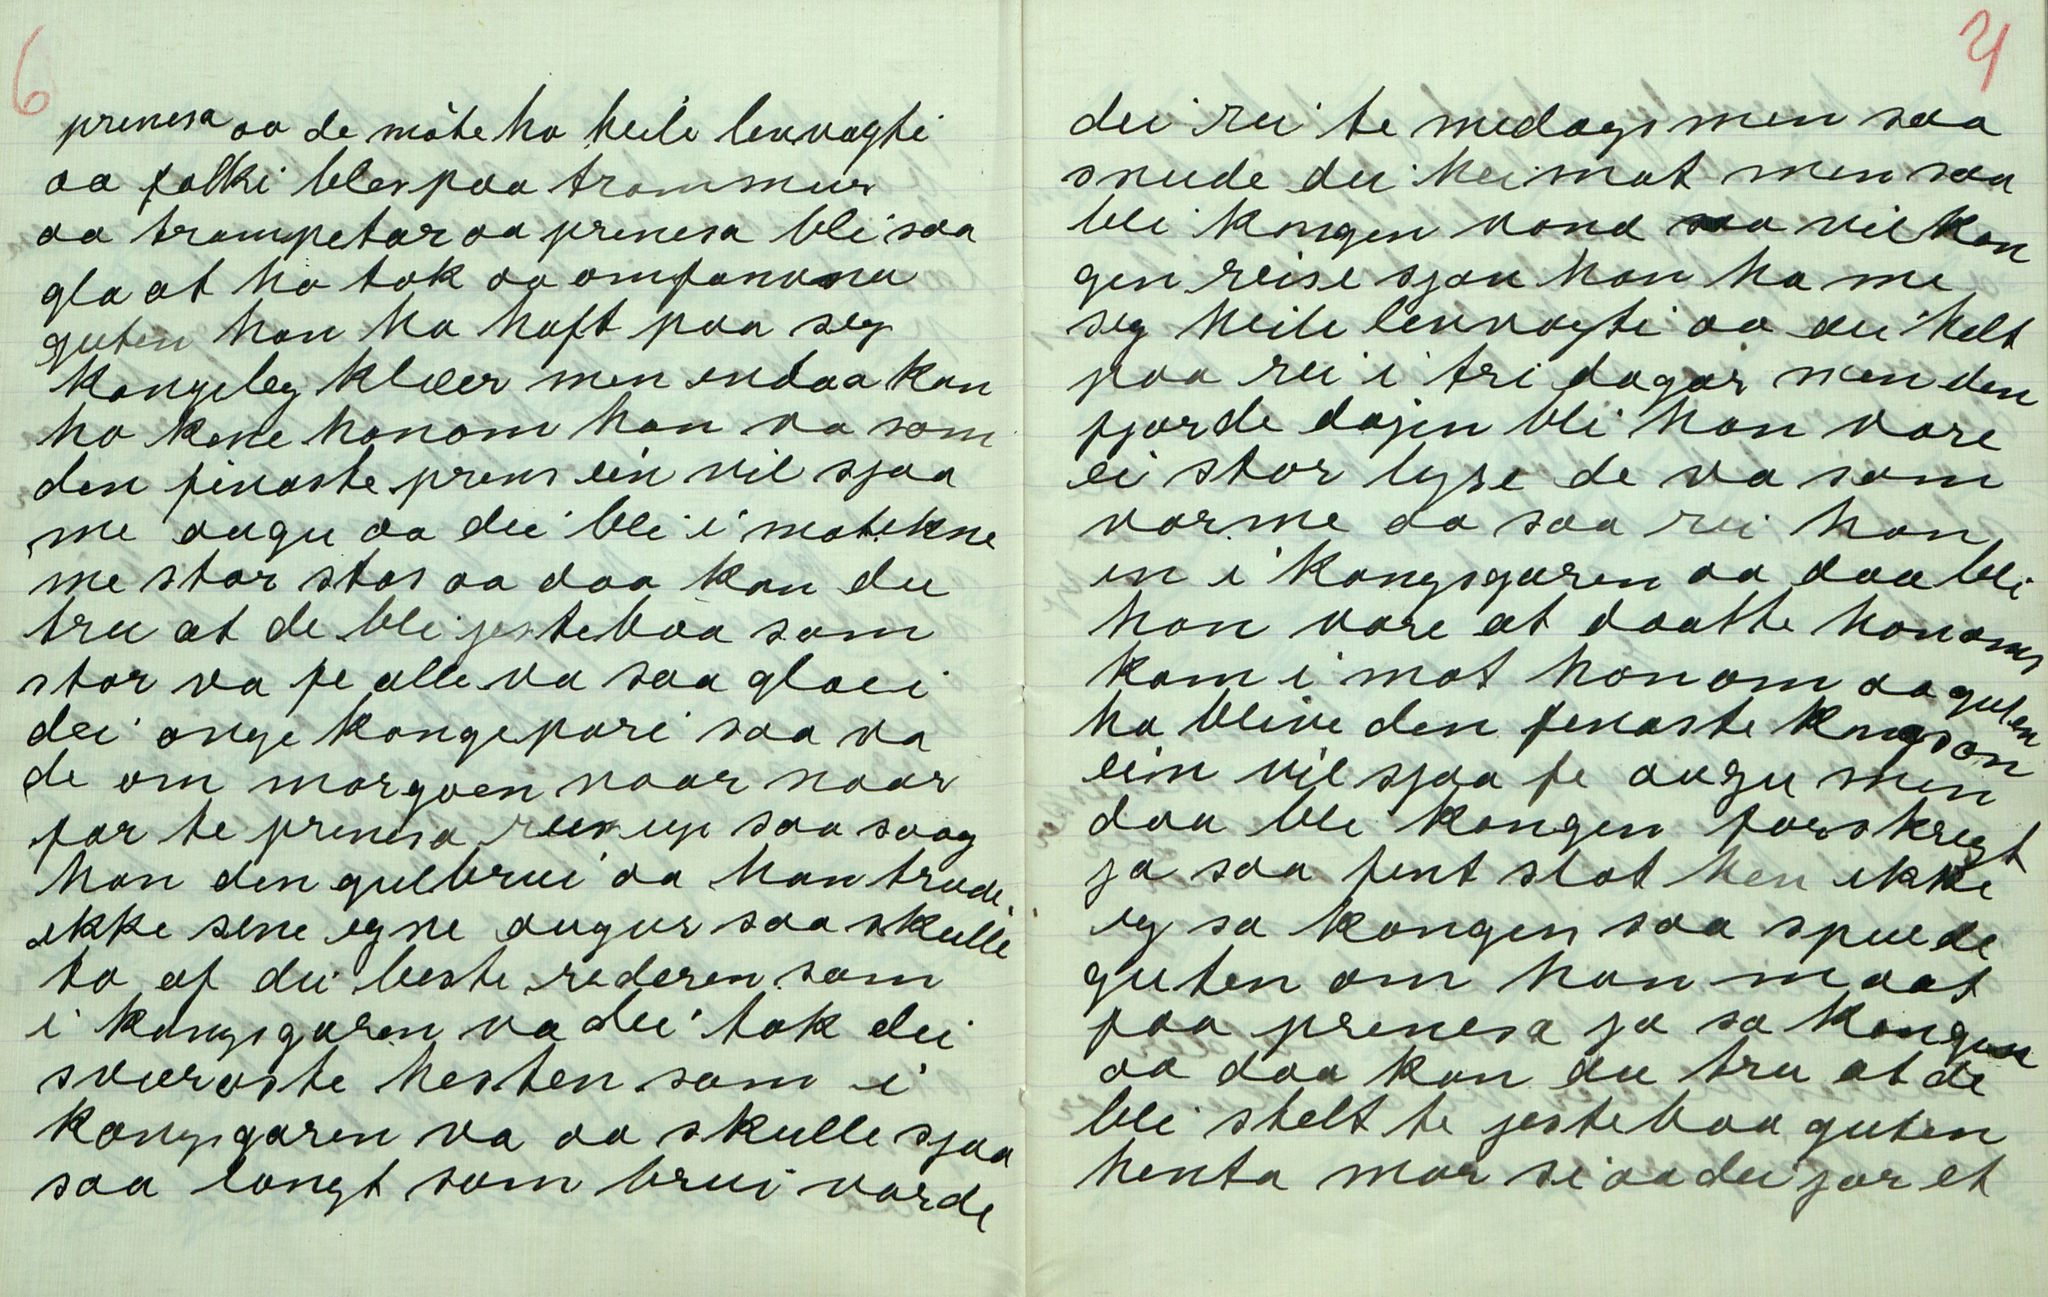 6
prensesa aa de möte ho heile levvagti
aa folki bles paa trommur
aa trompetar aa prenesa blei saa
gla at ho tok aa omfavna
guten han ha haft paa seg
kongeleg klæer men endaa kan
ho kene honom han va som
den finaste prens ein vil sjaa
me augu aa dei blei i motekne
me stor stas aa daa kan du
tru at de blei jestebaa som
stor va fe alle va saa glae i
dei onge kongepari saa va
de om morgoen naar naar
far te prenesa reis up saa saag
han den gulbrui aa han trude
ikke sene egne augur saa skulle
to af dei beste rederen som
i kongsgaren va dei tok dei
sværaste hesten som i
kongsgaren va aa skulle sjaa
saa langt som brui varde
7
dei rei te medags men saa
snude dei heimat men saa
blei kongen vond saa vil kon
gen reise sjøu han ha me
seg heile levvagti aa dei helt
paa rei i tri dagar men den
fjorde dajen blei han vare
ei stor lyse de va som
varme aa saa rei han
in i kongsgaren aa daa blei
han vare at daatte honoms
kom i mot honom aa guten
ha bleive den fenaste kongson
ein vil sjaa fe augu men
daa blei kongen forskregt
ja saa fint slot hev ikke
eg sa kongen saa spurde
guten om han maat
faa prenesa ja sa kongen
aa daa kan du tru at de
blei stelt te jestebaa guten
henta mor si aa dei jor et